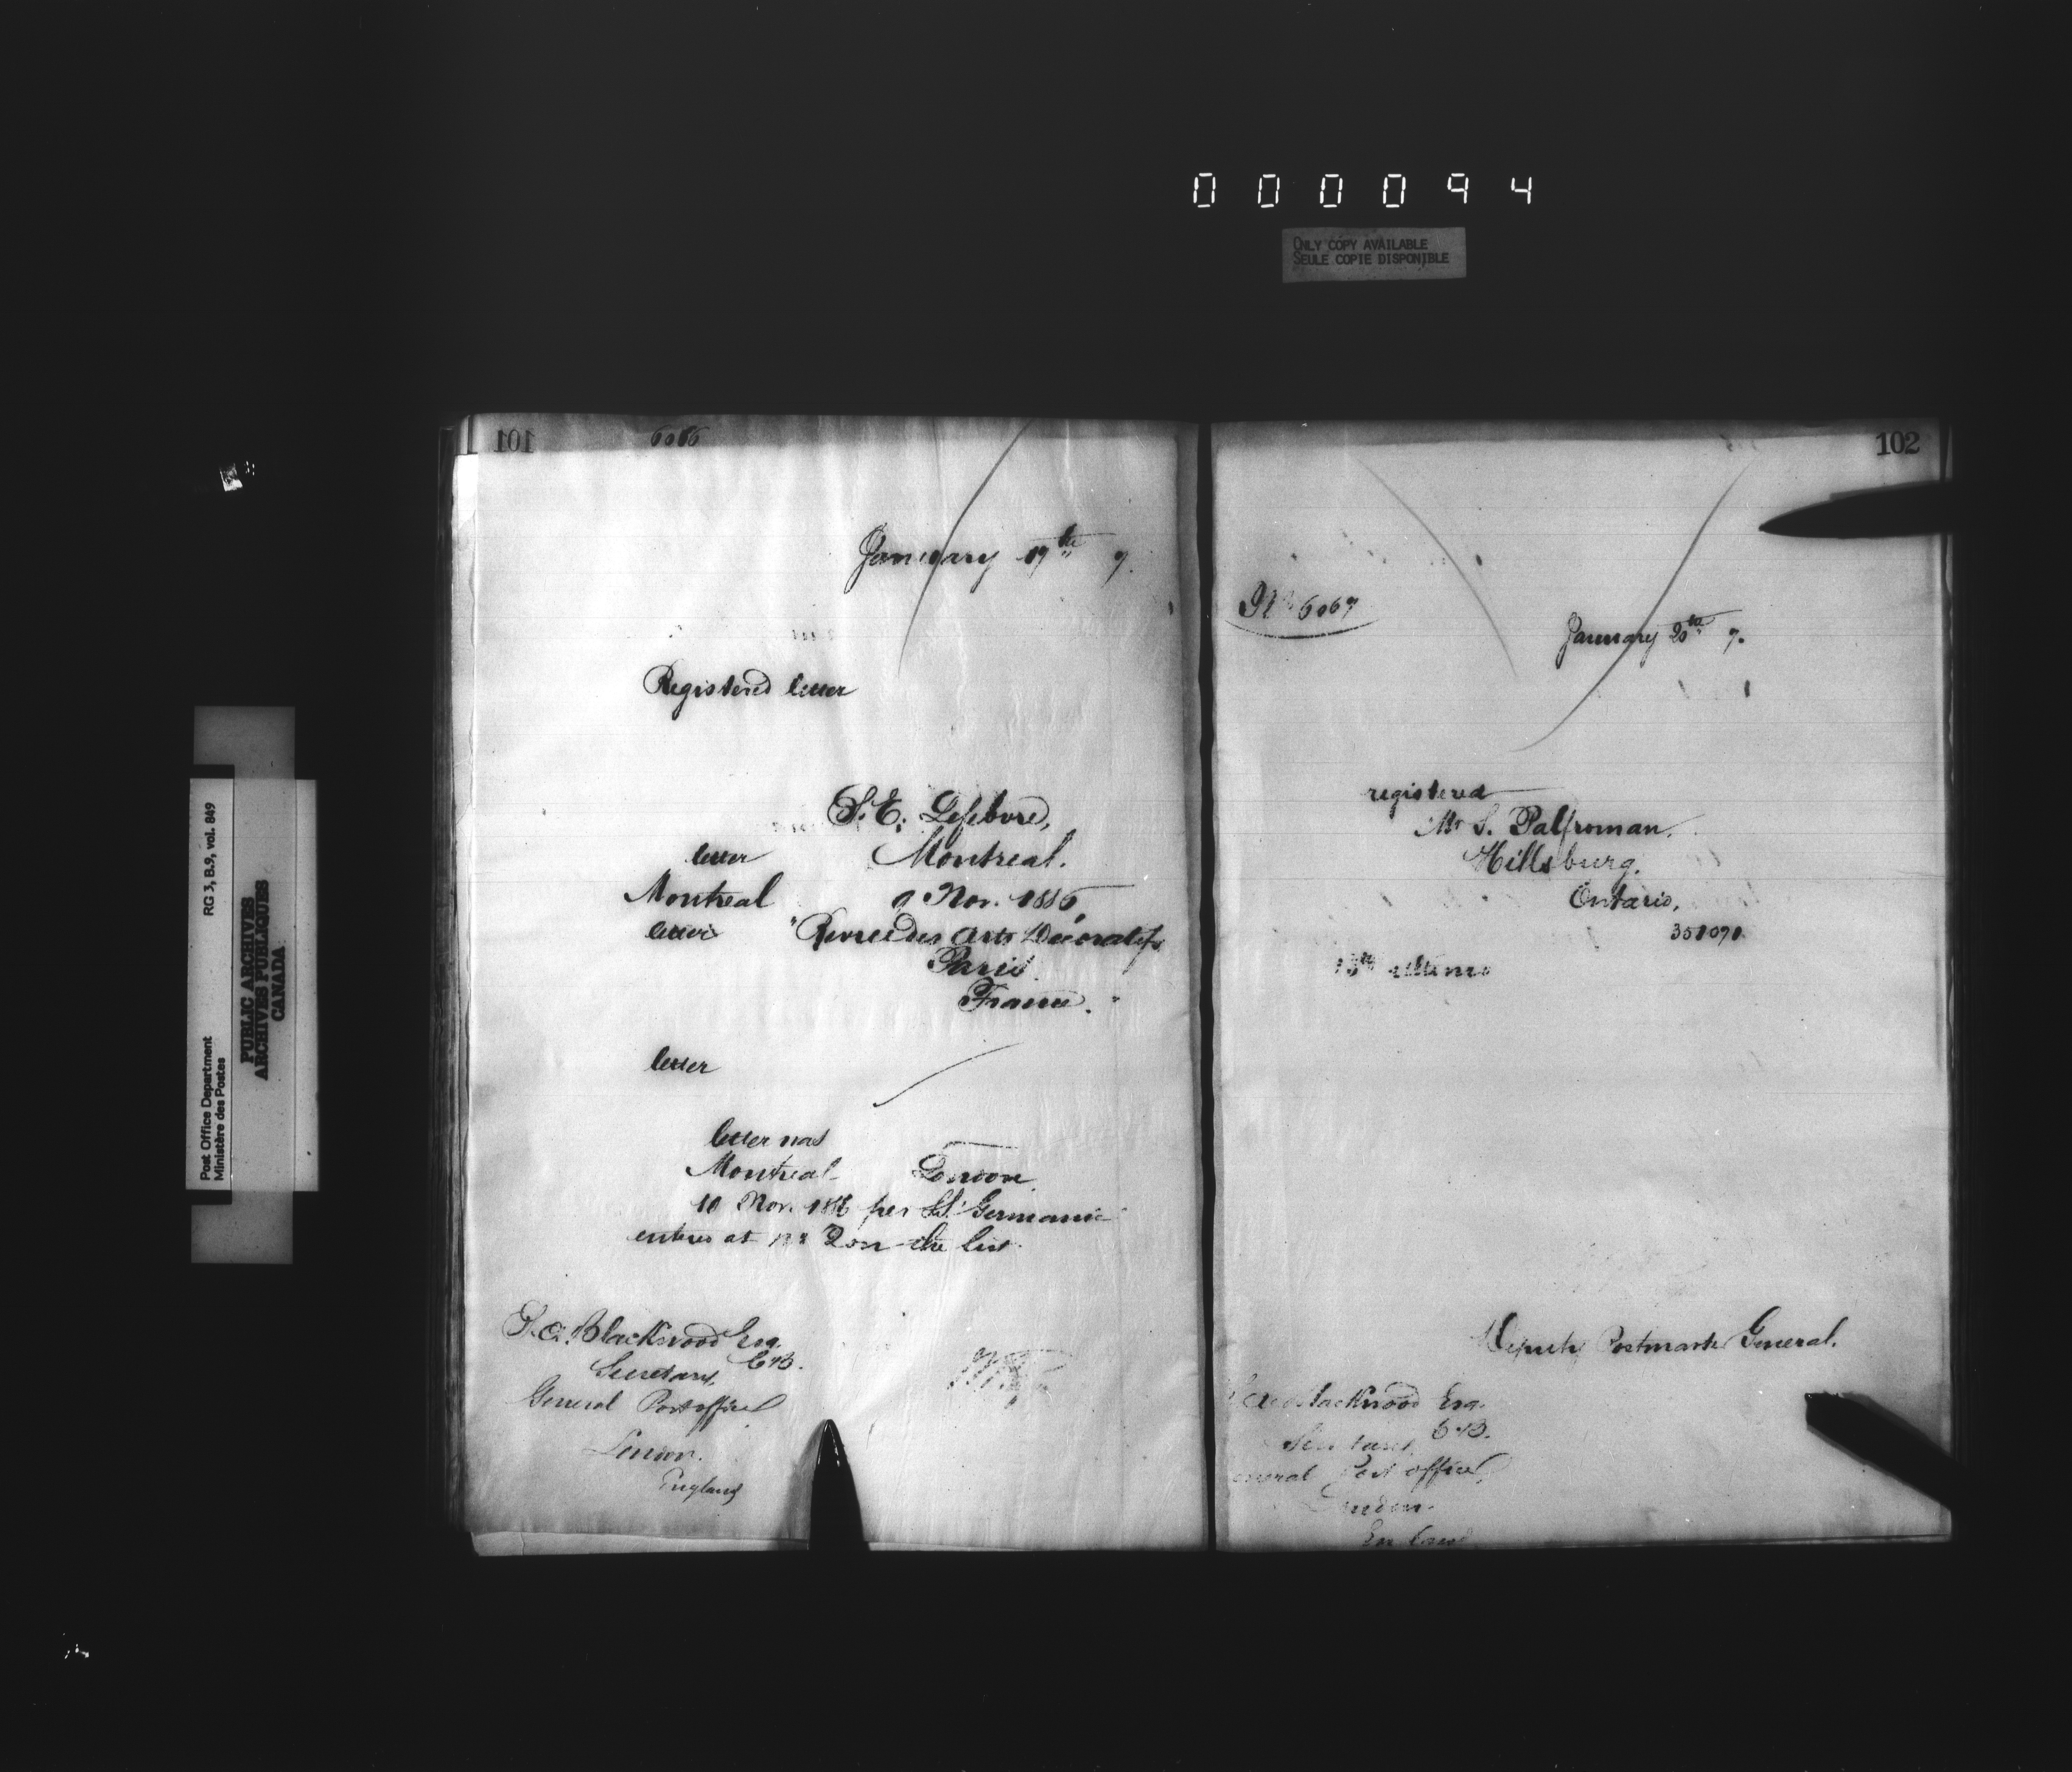 000094
ONLY COPY AVAILABLE
SEULE COPIE DISPONIBLE
Post Office Department
Ministère des Postes
RG 3, B.9, vol. 849
PUBLIC ARCHIVES
ARCHIVES PUBLIQUES
CANADA
101
6066
January 19th 7.
Registered letter
S. E. Lefebvre,
letter Montreal.
Montreal 9 Nov. 1886
letter "Revue des Arts Décoratifs
Paris
France."
letter
letter was
Montreal London
10 Nov. 1886 per SS. Germanic
entered at No 2 on the list.
S. A. Blackwood Esq.
C.B.
Secretary,
General Post office
London.
England
102
No 6067
January 20th 7.
registered
Mr S. Palfroman.
Hillsburg.
Ontario,
358091
13th ultimo
Deputy Postmaster General.
Blackwood Esq.
C.B.
Secretary
General Post office,
London.
England